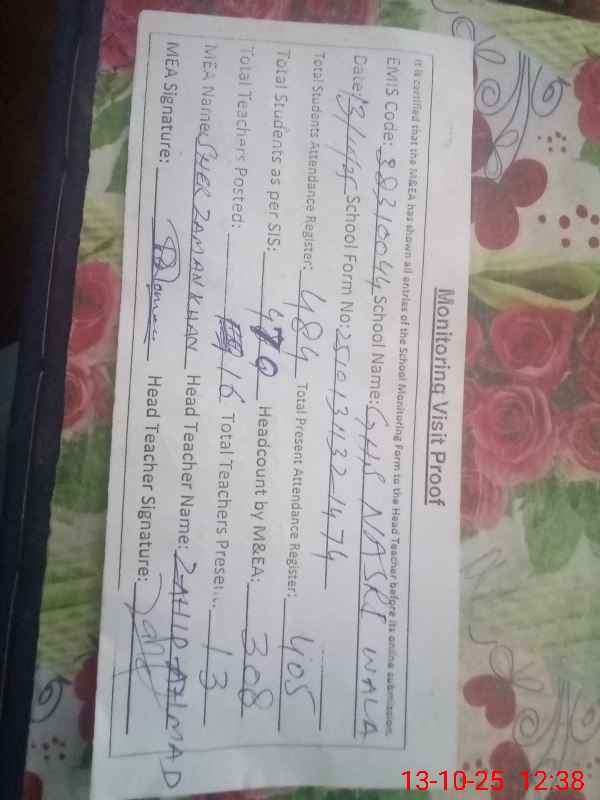 Monitoring Visit Proof
It is certified that the M&EA has shown all entries of the School Monitoring Form to the Head Teacher before its online submission.
EMIS Code: 38310044 School Name: GHS NASRI WALA
Date: School Form No: 2510131132-1474
Total Students Attendance Register: 484 Total Present Attendance Register: 405
Total Students as per SIS: Headcount by M&EA: 308
Total Teachers Posted: 16 Total Teachers Present: 13
MEA Name: SHER ZAMAN KHAN Head Teacher Name: ZAHID AHMAD
MEA Signature: Head Teacher Signature:
13-10-25 12:38